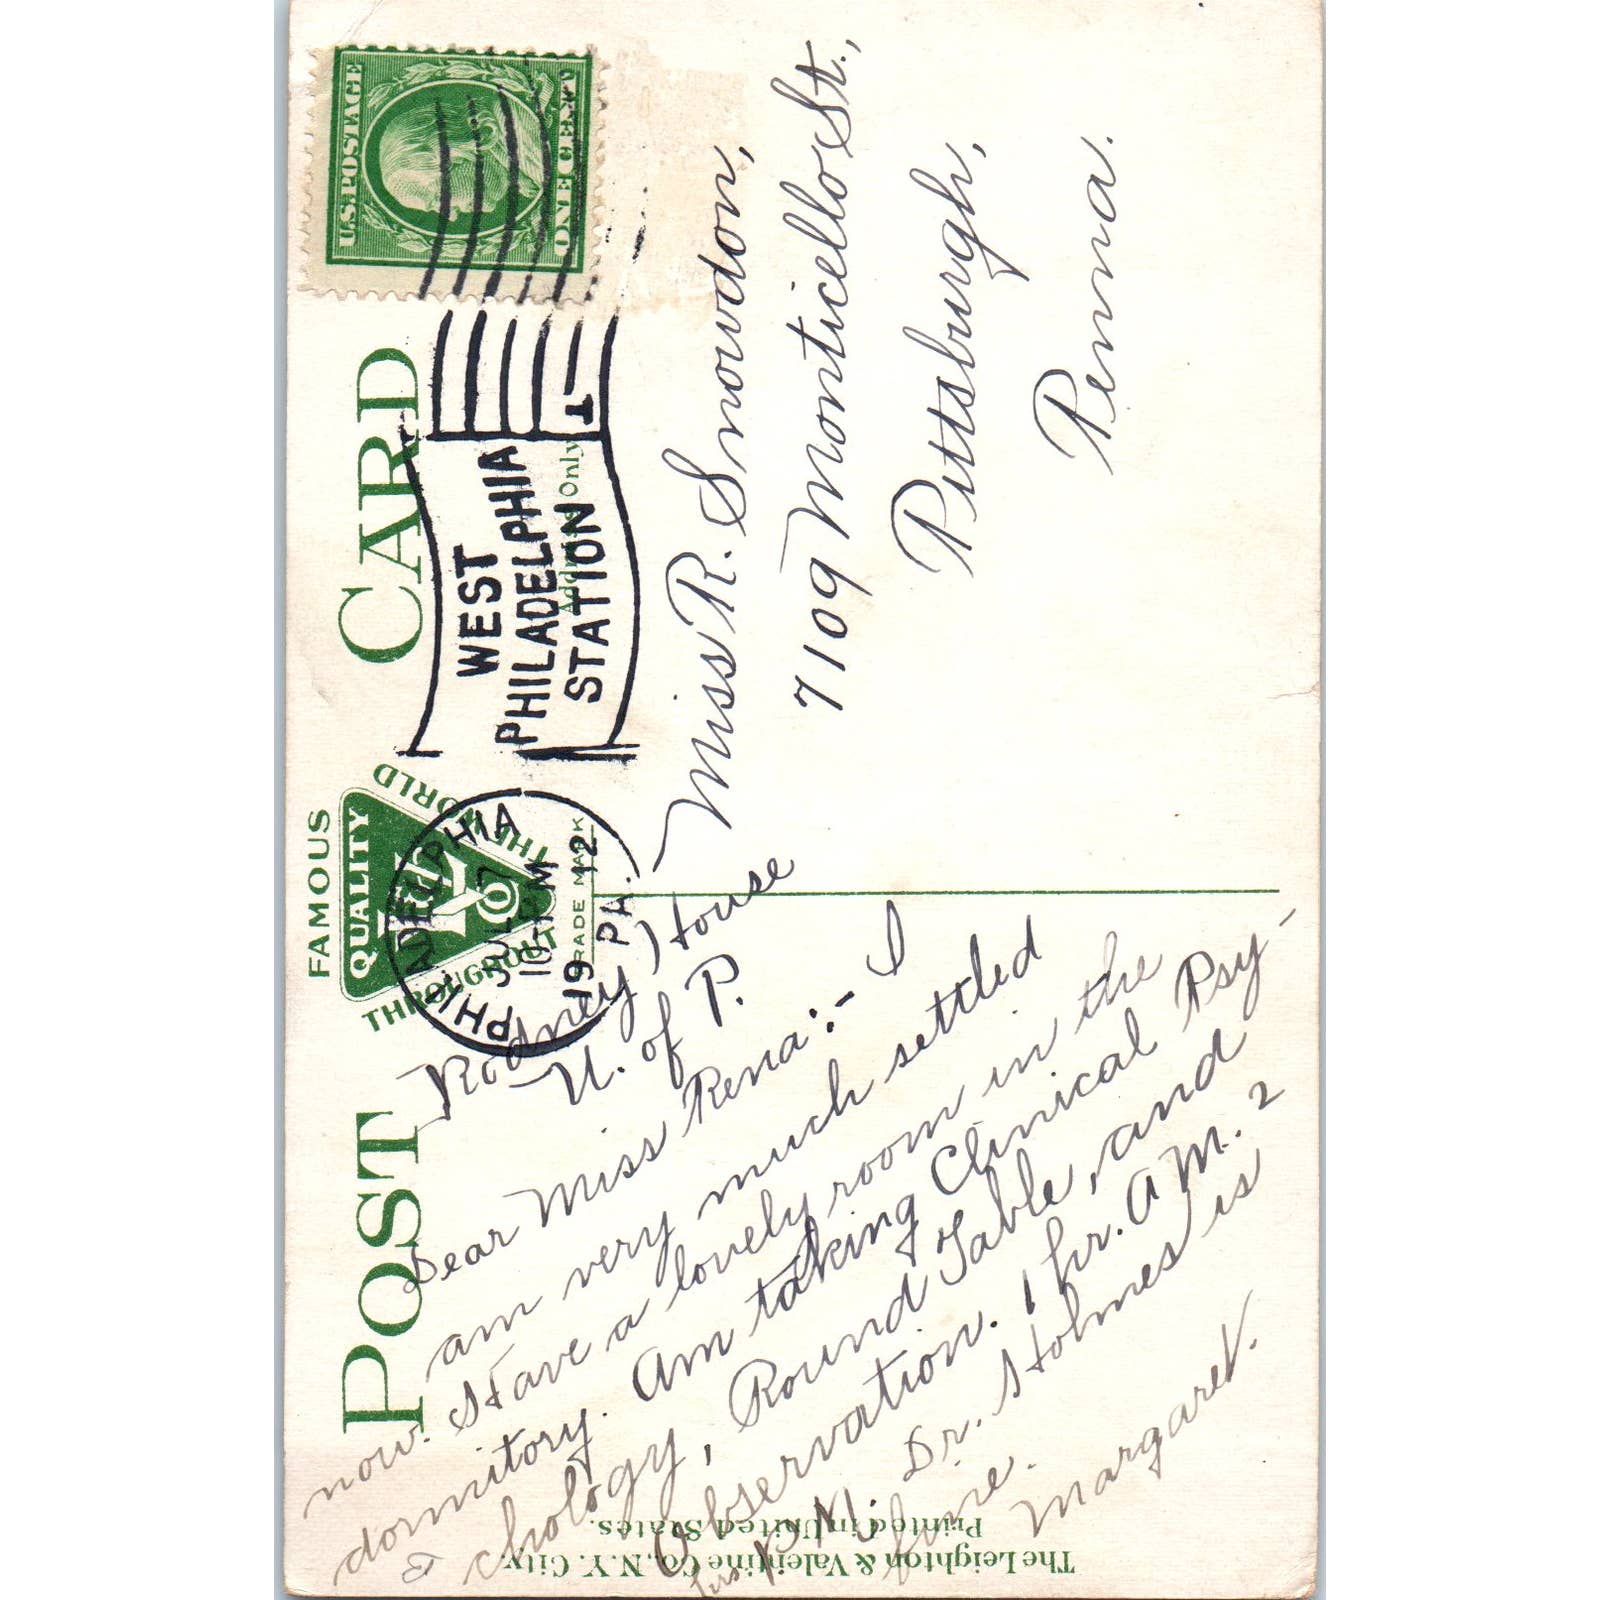 POST CARD
FAMOUS
QUALITY
THROUGHOUT THE WORLD
TRADE MARK
Address Only
U.S. POSTAGE
ONE CENT
PHILADELPHIA
JUL 7
10-PM
1912
PA.
WEST
PHILADELPHIA
STATION
1
Rodney House
U. of P.
Dear Miss Rena:- I
am very much settled
now. Have a lovely room in the
dormitory. Am taking Clinical Psy-
chology, Round Table, and
Observation. 1 hr. A M. 2
hrs P.M. Dr. Holmes is
fine.
Margaret.
Miss R. Snowdon,
7109 Monticello St.,
Pittsburgh,
Penna.
The Leighton & Valentine Co., N.Y. City.
Printed in United States.